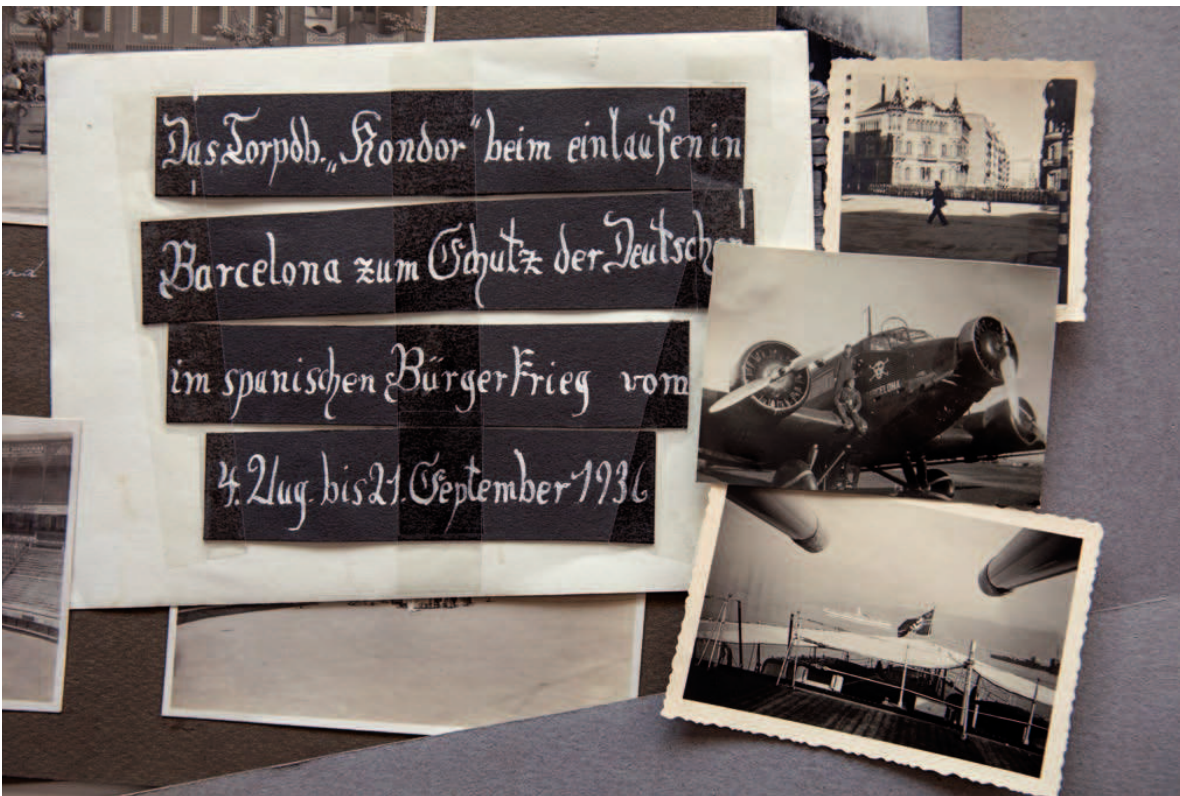 Das Torpdb. „Kondor“ beim einlaufen in
Barcelona zum Schutz der Deutschen
im spanischen Bürgerkrieg vom
4. Aug. bis 21. September 1936